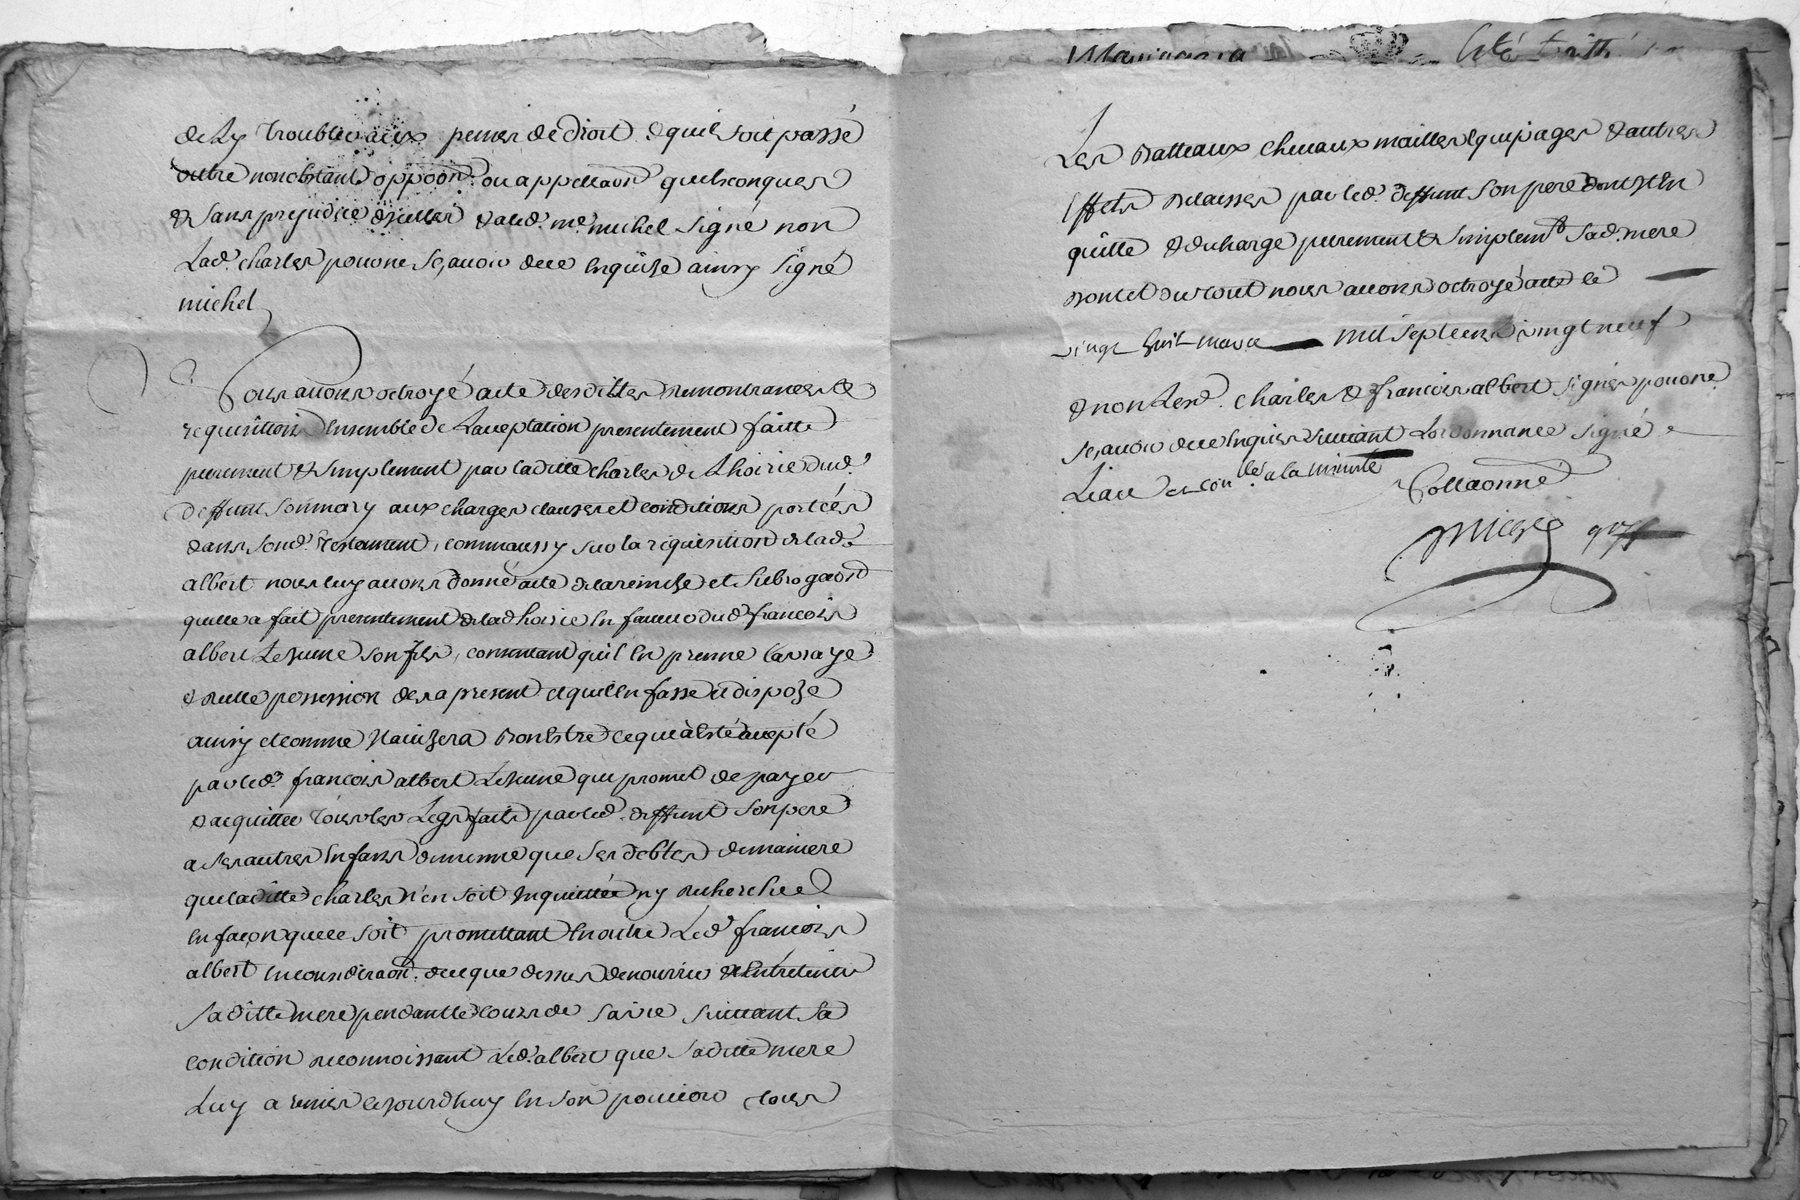 de ly troubler aux peines de droit & quil soit passé
outre nonobstant oppoon ou appellaon quelsconques
& sans prejudice & alad. me. michel signé non
Lad. charles pour ne sçavoir de ce enquise ainsy signé
michel
Nous avons octroyé acte desdittes remontrances &
requisition Ensemble de Laceptation presentement faitte
purement & simplement par laditte charles de Lhoirie dud.
deffunt son mary aux charges clauses et conditions portées
dans sond. testament, comm aussy sur la requisition de lad.
albert nous luy avons donné acte de la remise et subrogaon
quelle a fait presentement de lad hoirie en faveur dud francois
albert Lejeune son fils, consentant quil en prenne la vraye
& reelle possession des a present et quil en fasse et dispose
ainsy et comme Il avisera bon Estre ce qui a esté accepté
par led. francois albert Lejeune qui promet de payer
& acquitter tous les Legs faits par led. deffunt son pere
a ses autres Enfans de mesme que ses debtes de maniere
que laditte charles n'en soit Inquiettée ny recherchée
en façon quelle soit promettant En outre Led francois
albert en consideraon de ce que dessus de nourrir & Entretenir
sa ditte mere pendant le cours de sa vie suivant sa
condition reconnoissant Led. albert que saditte mere
Luy a remis ce jourdhuy en son pouvoir tous
Les Batteaux chevaux mailles Equipages & autres
Effets delaisses par led. deffunt son pere dont Il En
quitte & decharge purement & simplemt. sad. mere
dont et du tout nous avons octroyé acte le
vingt huit mars mil sept cens vingt neuf
& non Lesd. charles & francois albert signés pour ne
sçavoir de ce Enquis suivant Lordonnance signé
Liau et con.lé a la minute
Collaonné
michel greff